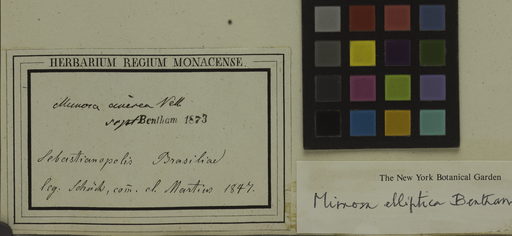 HERBARIUM REGIUM MONACENSE.
Mimosa cinerea Vell
sept Bentham 1873
Sebastianopolis Brasiliae
leg. Schück, com. cl. Martius 1847.
The New York Botanical Garden
Mimosa elliptica Bentham